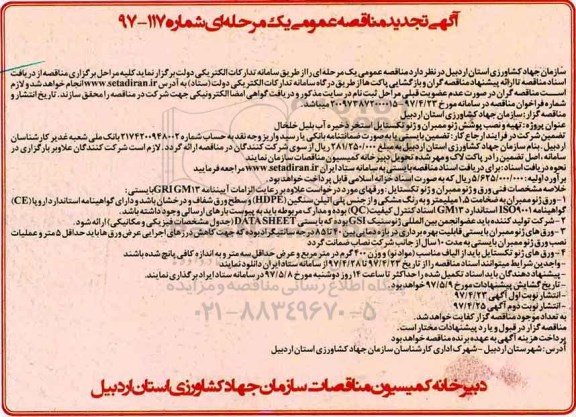 آگهی تجدید مناقصه عمومی یک مرحله ای شماره ۱۱۷-۹۷
سازمان جهاد کشاورزی استان اردبیل در نظر دارد مناقصه عمومی یک مرحله ای را از طریق سامانه تدارکات الکتریکی دولت برگزار نماید کلیه مراحل برگزاری مناقصه از دریافت
اسناد مناقصه تا ارائه پیشنهاد مناقصه گران و بازگشایی پاکت ها از طریق درگاه سامانه تدارکات الکتریکی دولت (ستاد) به آدرس www.setadiran.ir انجام خواهد شد و لازم
است مناقصه گران در صورت عدم عضویت قبلی مراحل ثبت نام در سایت مذکور و دریافت گواهی امضا الکترونیکی جهت شرکت در مناقصه را محقق سازند. تاریخ انتشار و
شماره فراخوان مناقصه در سامانه مورخ ۹۷/۴/۲۳ میباشد
مناقصه گزار: سازمان جهاد کشاورزی استان اردبیل
عنوان پروژه: تهیه و نصب پوشش ژئوممبران و ژئوتکستایل استخر ذخیره آب بلیل خلخال
تضمین شرکت در فرایند ارجاع کار: تضمین بایستی یا به صورت ضمانتنامه بانکی یا رسید واریز وجه نقد به حساب شماره ۲۱۷۴۲۰۰۹۴۸۰۰۲ بانک ملی شعبه غدیر کارشناسان
اردبیل، بنام سازمان جهاد کشاورزی استان اردبیل به مبلغ ۲۸۱/۲۵۰/۰۰۰ ریال از سوی شرکت کنندگان در مناقصه ارائه گردد. لازم است شرکت کنندگان علاوه بر بارگزاری در
سامانه، اصل تضمین را در پاکت لاک و مهر شده تحویل دبیرخانه کمیسیون مناقصات سازمان نمایند
نحوه دریافت اسناد: برای دریافت اسناد مناقصه بایستی به سامانه ستاد ایران www.setadiran.ir مراجعه فرمایید
برآورد اولیه: ۵/۶۲۵/۰۰۰/۰۰۰ ریال که به صورت اسناد خزانه اسلامی قابل پرداخت خواهد بود.
خلاصه مشخصات فنی ورق و ژئوممبران و ژئوتکستایل: ورقهای مورد درخواست علاوه بر رعایت الزامات آیین نامه GRI GM13 بایستی:
۱- ورق ژئوممبران به ضخامت ۱.۵ میلیمتر و به رنگ مشکی و از جنس پلی اتیلن سنگین (HDPE) و سطح ورق شفاف و درخشان باشد و دارای گواهینامه استاندارد اروپا (CE)
گواهینامه ISO9001 استاندارد GM13 اسناد کنترل کیفیت (QC) بوده و مدارک مربوطه باید به پیوست بارهای ارسالی وجود داشته باشد.
۲- شرکت تولید کننده باید عضو انجمن بین المللی ژئوسنتتیک IGS بوده که بایستی DATA SHEET (جدول مشخصات فیزیکی و مکانیکی) ارائه شود.
۳- ورق های ژئوممبران بایستی قابلیت بهره برداری در بازه دمایی بین ۴۰ تا ۸۵ درجه سانتیگراد بوده که جهت کاهش درزهای اجرایی عرض ورق ها باید حداقل ۵ متر و عملیات
نصب ورق ژئوممبران بایستی به مدت ۱۰ سال از جانب شرکت نصاب ضمانت گردد
۴- ورق های ژئوتکستایل باید از الیاف مناسب (مواد نو) و وزن ۴۰۰ گرم در متر مربع و عرض حداقل سه متر و به اندازه کافی پانچ شده باشند
- واجدین شرایط میتوانند اسناد مناقصه را از تاریخ ۹۷/۴/۲۳ لغایت ۹۷/۴/۲۸ از سامانه ستاد ایران دانلود نمایند
- پیشنهاد دهندگان باید اسناد تکمیل شده را حداکثر تا ساعت ۱۴ روز دوشنبه مورخ ۹۷/۵/۸ در سامانه ستاد ایران بارگذاری نمایند.
- تاریخ گشایش پیشنهادات مورخ ۹۷/۵/۹ خواهد بود.
- انتشار نوبت اول آگهی ۹۷/۴/۲۳
- انتشار نوبت دوم آگهی ۹۷/۴/۲۵
به تعداد موجود مناقصه گزار کفایت خواهد شد.
مناقصه گزار در قبول و یا رد پیشنهادات مختار است.
پرداخت هزینه آگهی به عهده برنده مناقصه خواهد بود
آدرس: شهرستان اردبیل - شهرک اداری کارشناسان سازمان جهاد کشاورزی استان اردبیل
۰۲۱-۸۸۳۴۹۶۷۰-۵
دبیرخانه کمیسیون مناقصات سازمان جهاد کشاورزی استان اردبیل